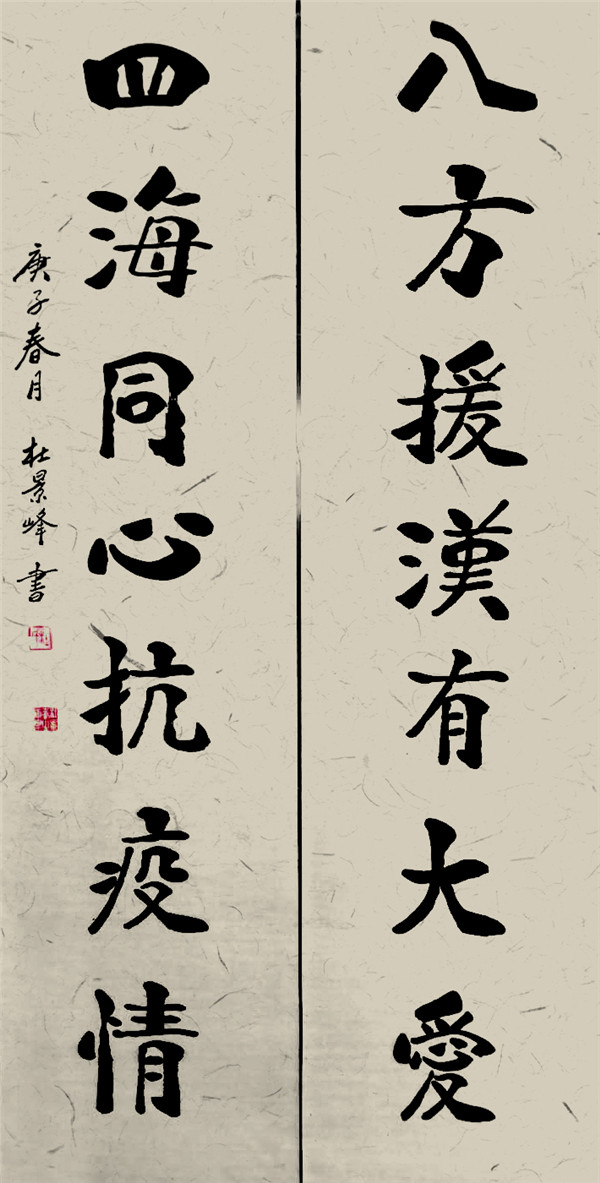 八方援漢有大愛
四海同心抗疫情
庚子春月 杜景峰書